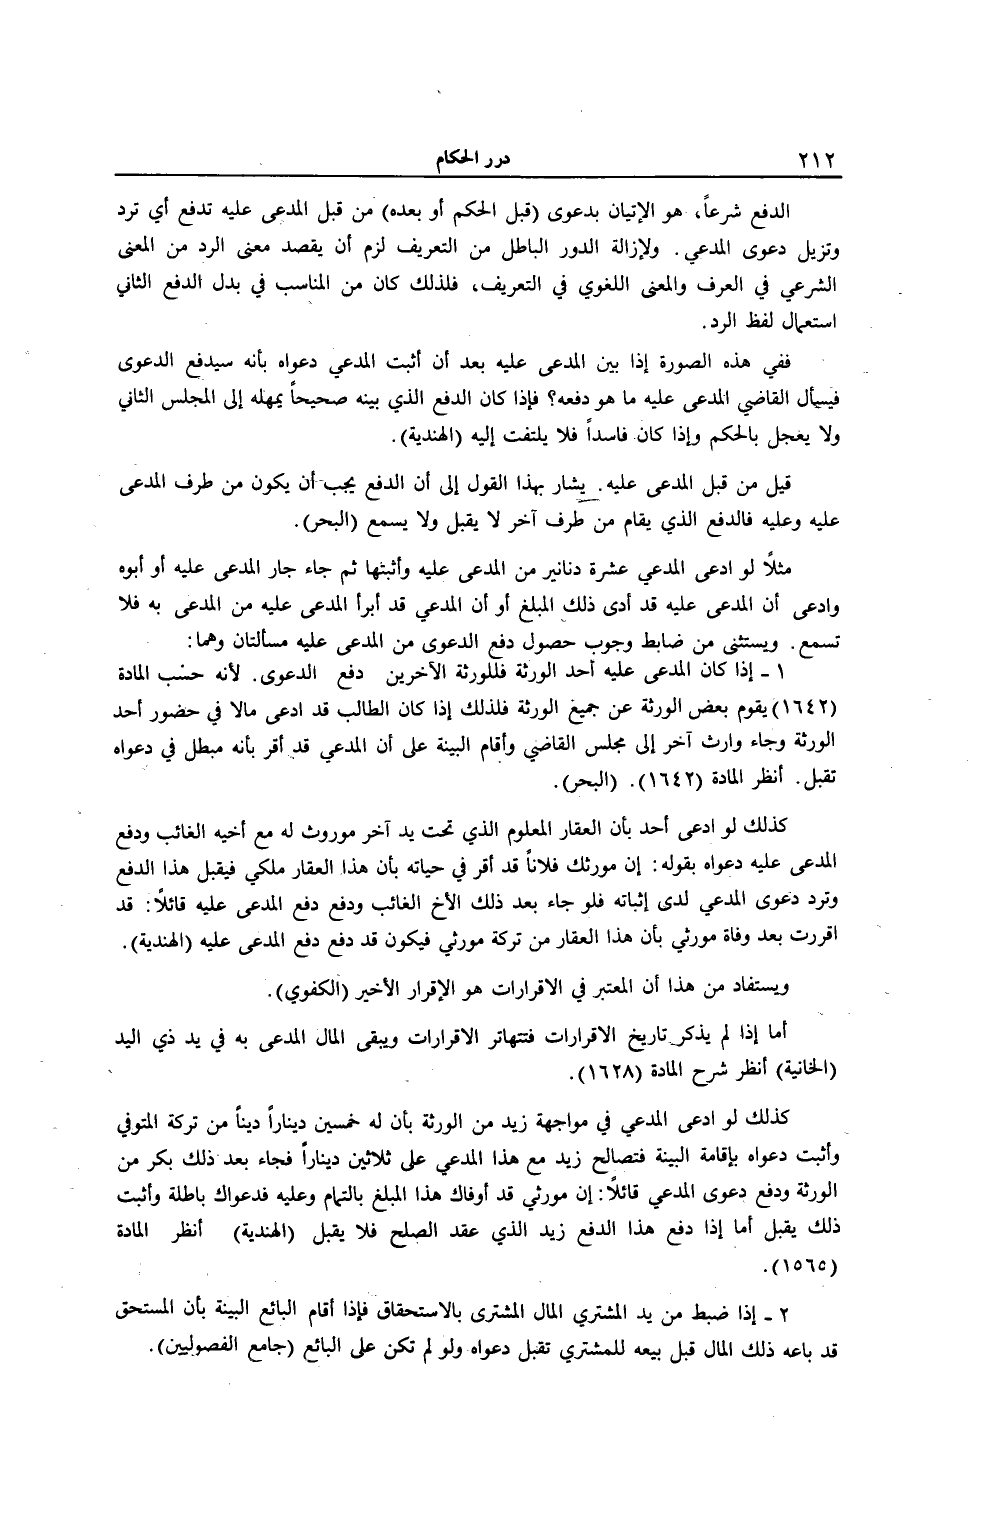 ٢١٢
درر الحكام
الدفع شرعاً، هو الإتيان بدعوى (قبل الحكم أو بعده) من قبل المدعى عليه تدفع أي ترد
وتزيل دعوى المدعي. ولإزالة الدور الباطل من التعريف لزم أن يقصد معنى الرد من المعنى
الشرعي في العرف والمعنى اللغوي في التعريف، فلذلك كان من المناسب في بدل الدفع الثاني
استعمال لفظ الرد.
ففي هذه الصورة إذا بين المدعى عليه بعد أن أثبت المدعي دعواه بأنه سيدفع الدعوى
فيسأل القاضي المدعى عليه ما هو دفعه؟ فإذا كان الدفع الذي بينه صحيحاً يمهله إلى المجلس الثاني
ولا يعجل بالحكم وإذا كان فاسداً فلا يلتفت إليه (الهندية).
قيل من قبل المدعى عليه. يشار بهذا القول إلى أن الدفع يجب أن يكون من طرف المدعى
عليه وعليه فالدفع الذي يقام من طرف آخر لا يقبل ولا يسمع (البحر).
مثلًا لو ادعى المدعي عشرة دنانير من المدعى عليه وأثبتها ثم جاء جار المدعى عليه أو أبوه
وادعى أن المدعى عليه قد أدى ذلك المبلغ أو أن المدعي قد أبرأ المدعى عليه من المدعى به فلا
تسمع. ويستثنى من ضابط وجوب حصول دفع الدعوى من المدعى عليه مسألتان وهما:
١ ـ إذا كان المدعى عليه أحد الورثة فللورثة الآخرين دفع الدعوى. لأنه حسب المادة
(١٦٤٢) يقوم بعض الورثة عن جميع الورثة فلذلك إذا كان الطالب قد ادعى مالا في حضور أحد
الورثة وجاء وارث آخر إلى مجلس القاضي وأقام البينة على أن المدعي قد أقر بأنه مبطل في دعواه
تقبل. أنظر المادة (١٦٤٢). (البحر).
كذلك لو ادعى أحد بأن العقار المعلوم الذي تحت يد آخر موروث له مع أخيه الغائب ودفع
المدعى عليه دعواه بقوله: إن مورثك فلاناً قد أقر في حياته بأن هذا العقار ملكي فيقبل هذا الدفع
وترد دعوى المدعي لدى إثباته فلو جاء بعد ذلك الأخ الغائب ودفع دفع المدعى عليه قائلًا: قد
اقررت بعد وفاة مورثي بأن هذا العقار من تركة مورثي فيكون قد دفع دفع المدعى عليه (الهندية).
ويستفاد من هذا أن المعتبر في الاقرارات هو الإقرار الأخير (الكفوي).
أما إذا لم يذكر تاريخ الاقرارات فتتهاتر الاقرارات ويبقى المال المدعى به في يد ذي اليد
(الخانية) أنظر شرح المادة (١٦٢٨).
كذلك لو ادعى المدعي في مواجهة زيد من الورثة بأن له خمسين ديناراً ديناً من تركة المتوفي
وأثبت دعواه بإقامة البينة فتصالح زيد مع هذا المدعي على ثلاثين ديناراً فجاء بعد ذلك بكر من
الورثة ودفع دعوى المدعي قائلًا: إن مورثي قد أوفاك هذا المبلغ بالتمام وعليه فدعواك باطلة وأثبت
ذلك يقبل أما إذا دفع هذا الدفع زيد الذي عقد الصلح فلا يقبل (الهندية) أنظر المادة
(١٥٦٥).
٢ ـ إذا ضبط من يد المشتري المال المشترى بالاستحقاق فإذا أقام البائع البينة بأن المستحق
قد باعه ذلك المال قبل بيعه للمشتري تقبل دعواه ولو لم تكن على البائع (جامع الفصوليين).